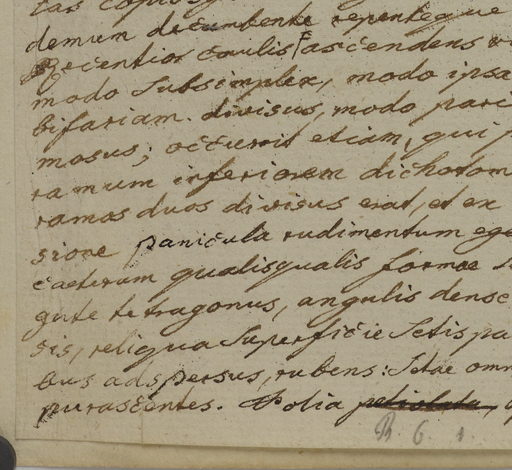 tas copios
demum decumbente repenteque
Recentior caulis ascendens
modo subsimplex, modo ipsa
bifariam divisus, modo pari
mosus; occurrit etiam, qui
ramum inferiorem dichotom
ramos duos divisus erat, et ex
sione panicula rudimentum ege
caeterum qualisqualis formae
gute tetragonus, angulis dense
sis, reliqua superficie setis pa
bus adspersus, rubens: Setae omn
purascentes. Folia petiolata,
B. 6. 1.